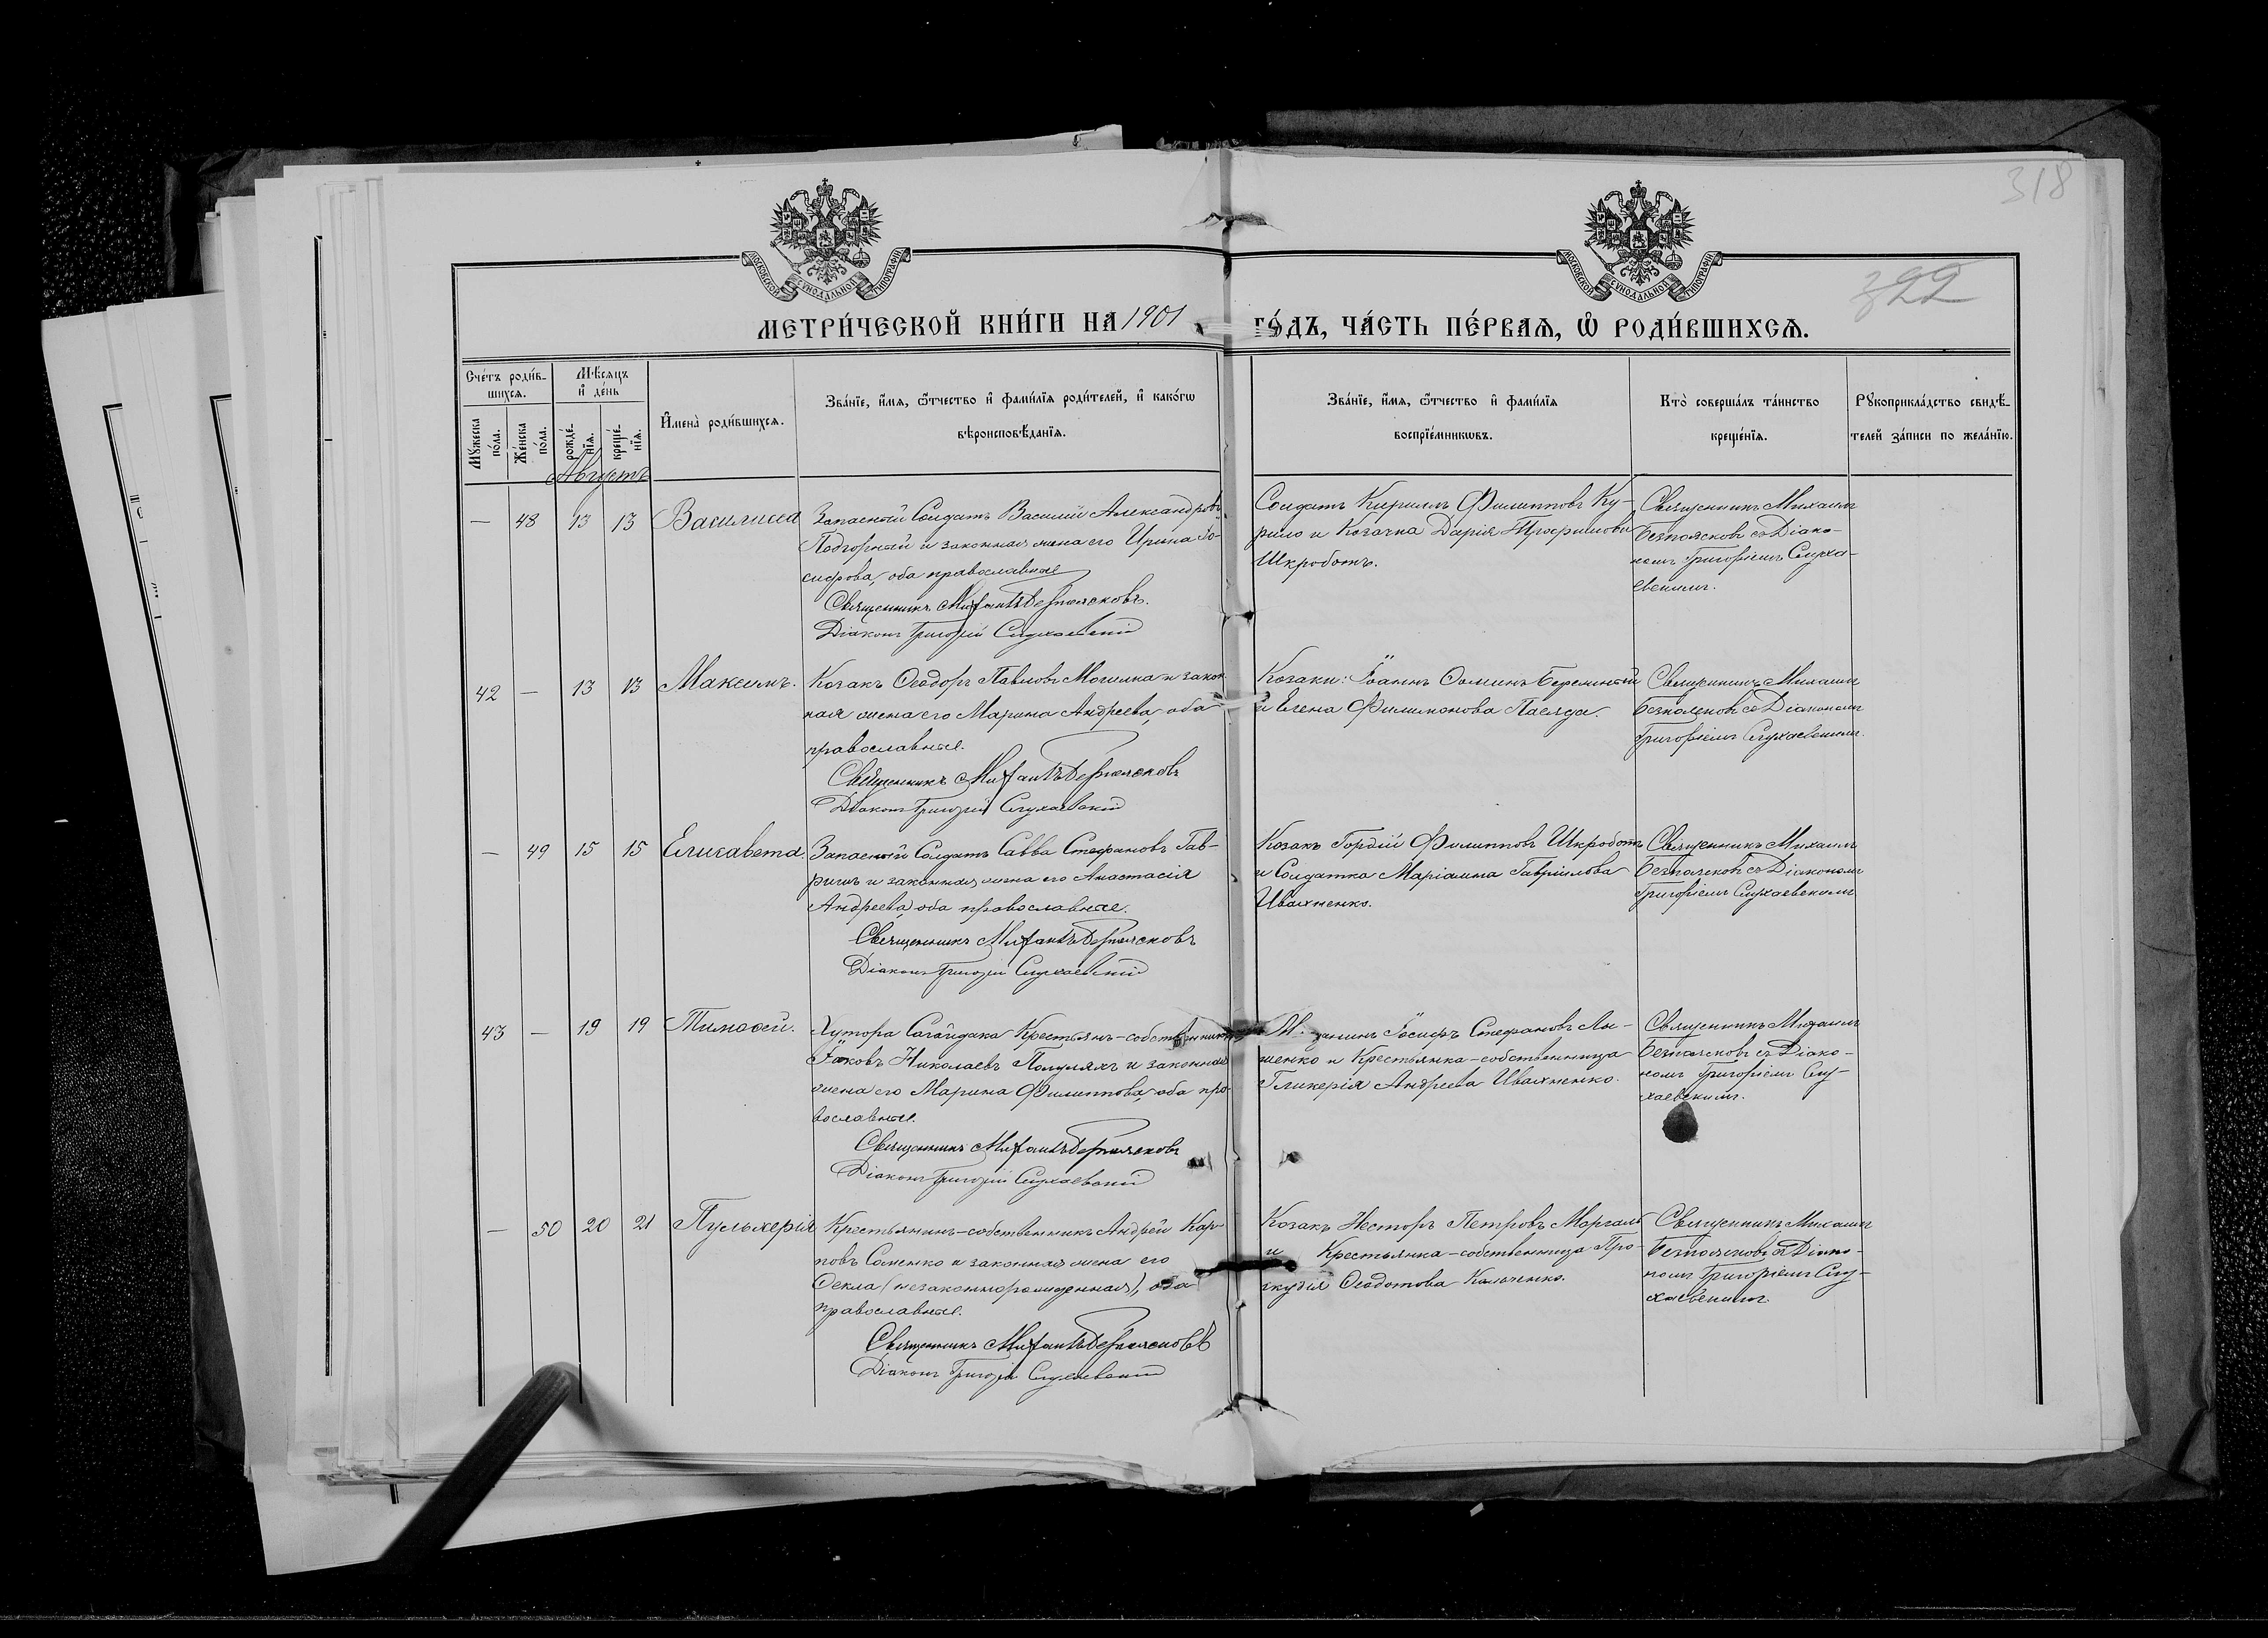 318
322
МОСКОВСКОЙ СѴНОДАЛЬНОЙ ТИПОГРАФІИ
МОСКОВСКОЙ СѴНОДАЛЬНОЙ ТИПОГРАФІИ
МЕТРИ́ЧЕСКОЙ КНИ́ГИ НА 1901 ГО́ДЪ, ЧА́СТЬ ПЕ́РВАѦ, Ѡ҆ РОДИ́ВШИХСѦ.
Сче́тъ роди́в-
шихсѧ.
Мꙋжеска по́ла.
Же́нска по́ла.
Мѣ́сяцъ
и҆ де́нь
рожде́-
нїѧ.
креще́-
нїѧ.
И҆мена̀ роди́вшихсѧ.
Зва́нїе, и҆́мѧ, ѻ҆́тчество и҆ фами́лїѧ роди́телей, и҆ како́гѡ
вѣроисповѣ́данїѧ.
Зва́нїе, и҆́мѧ, ѻ҆́тчество и҆ фами́лїѧ
воспрїе́мникѡвъ.
Кто̀ соверша́лъ та́инство
креще́нїѧ.
Рꙋкоприкла́дство свидѣ́-
телей за́писи по жела́нїю.
Августъ
— 48 13 13 Василисса
Запасный Солдатъ Василій Александровъ
Подгорный и законная жена его Ирина Іо-
сифова, оба православные
Священникъ Михаилъ Безпоясковъ.
Діаконъ Григорій Слухаевскій
Солдатъ Кириллъ Филипповъ Ку-
рило и Козачка Дарія Трофимова
Шкроботъ.
Священникъ Михаилъ
Безпоясковъ съ Діако-
номъ Григоріемъ Слуха-
евскимъ.
42 — 13 13 Максимъ.
Козакъ Ѳеодоръ Павловъ Могилка и закон
ная жена его Марина Андреева, оба
православные.
Священникъ Михаилъ Безпоясковъ
Діаконъ Григорій Слухаевскій
Козаки: Іоаннъ Ѳоминъ
и Елена Филимонова
Священникъ Михаилъ
Безпоясковъ съ Діакономъ
Григоріемъ Слухаевскимъ.
— 49 15 15 Елисавета.
Запасный Солдатъ Савва Стефановъ Гав-
ришъ и законная жена его Анастасія
Андреева, оба православные.
Священникъ Михаилъ Безпоясковъ
Діаконъ Григорій Слухаевскій
Козакъ Гордій Филипповъ Шкроботъ
и Солдатка Маріамна Гавріилова
Ивахненко.
Священникъ Михаилъ
Безпоясковъ съ Діакономъ
Григоріемъ Слухаевскимъ
43 — 19 19 Тимоѳей.
Хутора Сагайдака Крестьянъ-собственникъ
Іаковъ Николаевъ Полуляхъ и законная
жена его Марина Филиппова, оба пра
вославные.
Священникъ Михаилъ Безпоясковъ
Діаконъ Григорій Слухаевскій
Іосифъ Стефановъ Ля-
шенко и Крестьянка-собственница
Гликерія Андреева Ивахненко.
Священникъ Михаилъ
Безпоясковъ съ Діако-
номъ Григоріемъ Слу-
хаевскимъ.
— 50 20 21 Пульхерія
Крестьянинъ-собственникъ Андрей Кар-
повъ Саменко и законная жена его
Ѳекла (незаконнорожденная), оба
православные.
Священникъ Михаилъ Безпоясковъ
Діаконъ Григорій Слухаевскій
Козакъ Несторъ Петровъ Моргаль
и Крестьянка-собственница Про-
Ѳеодотова
Священникъ Михаилъ
Безпоясковъ съ Діако-
номъ Григоріемъ Слу-
хаевскимъ.